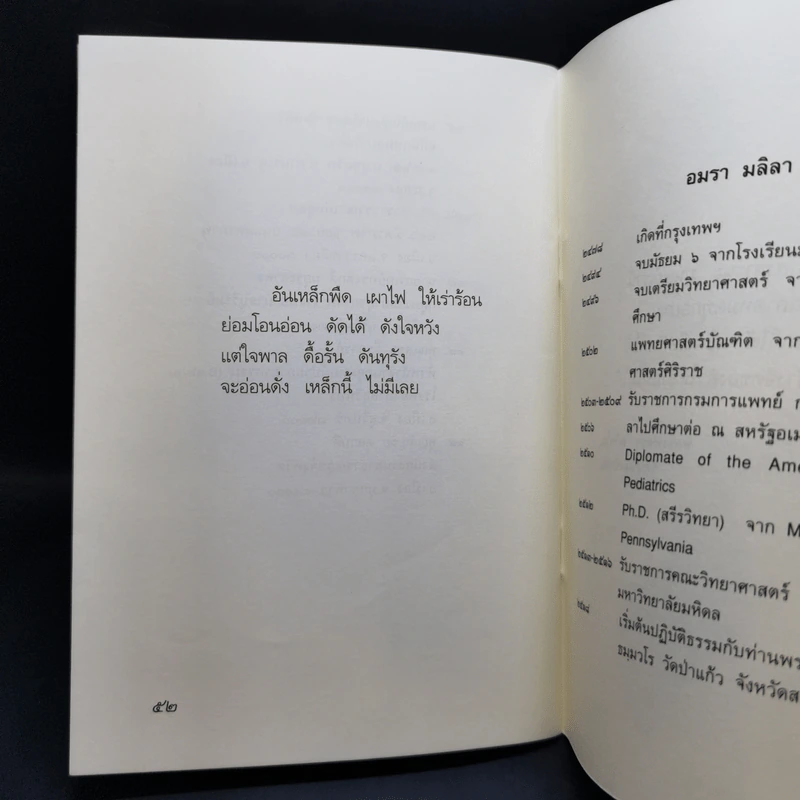 อันเหล็กพืด เผาไฟ ให้เร่าร้อน
ย่อมโอนอ่อน ดัดได้ ดังใจหวัง
แต่ใจพาล ดื้อรั้น ดันทุรัง
จะอ่อนดั่ง เหล็กนี้ ไม่มีเลย
๕๒
อมรา มลิลา
๒๔๗๘ เกิดที่กรุงเทพฯ
๒๔๙๔ จบมัธยม ๖ จากโรงเรียน
๒๔๙๖ จบเตรียมวิทยาศาสตร์
ศึกษา
๒๕๐๒ แพทยศาสตร์บัณฑิต จาก
ศาสตร์ศิริราช
๒๕๐๓-๒๕๐๙ รับราชการกรมการแพทย์
๒๕๐๖ ลาไปศึกษาต่อ ณ สหรัฐอเม
๒๕๑๐ Diplomate of the Ame
Pediatrics
๒๕๑๒ Ph.D. (สรีรวิทยา) จาก M
Pennsylvania
๒๕๑๓-๒๕๑๖ รับราชการคณะวิทยาศาสตร์
มหาวิทยาลัยมหิดล
๒๕๑๘ เริ่มต้นปฏิบัติธรรมกับท่านพร
ธมฺมวโร วัดป่าแก้ว จังหวัดส